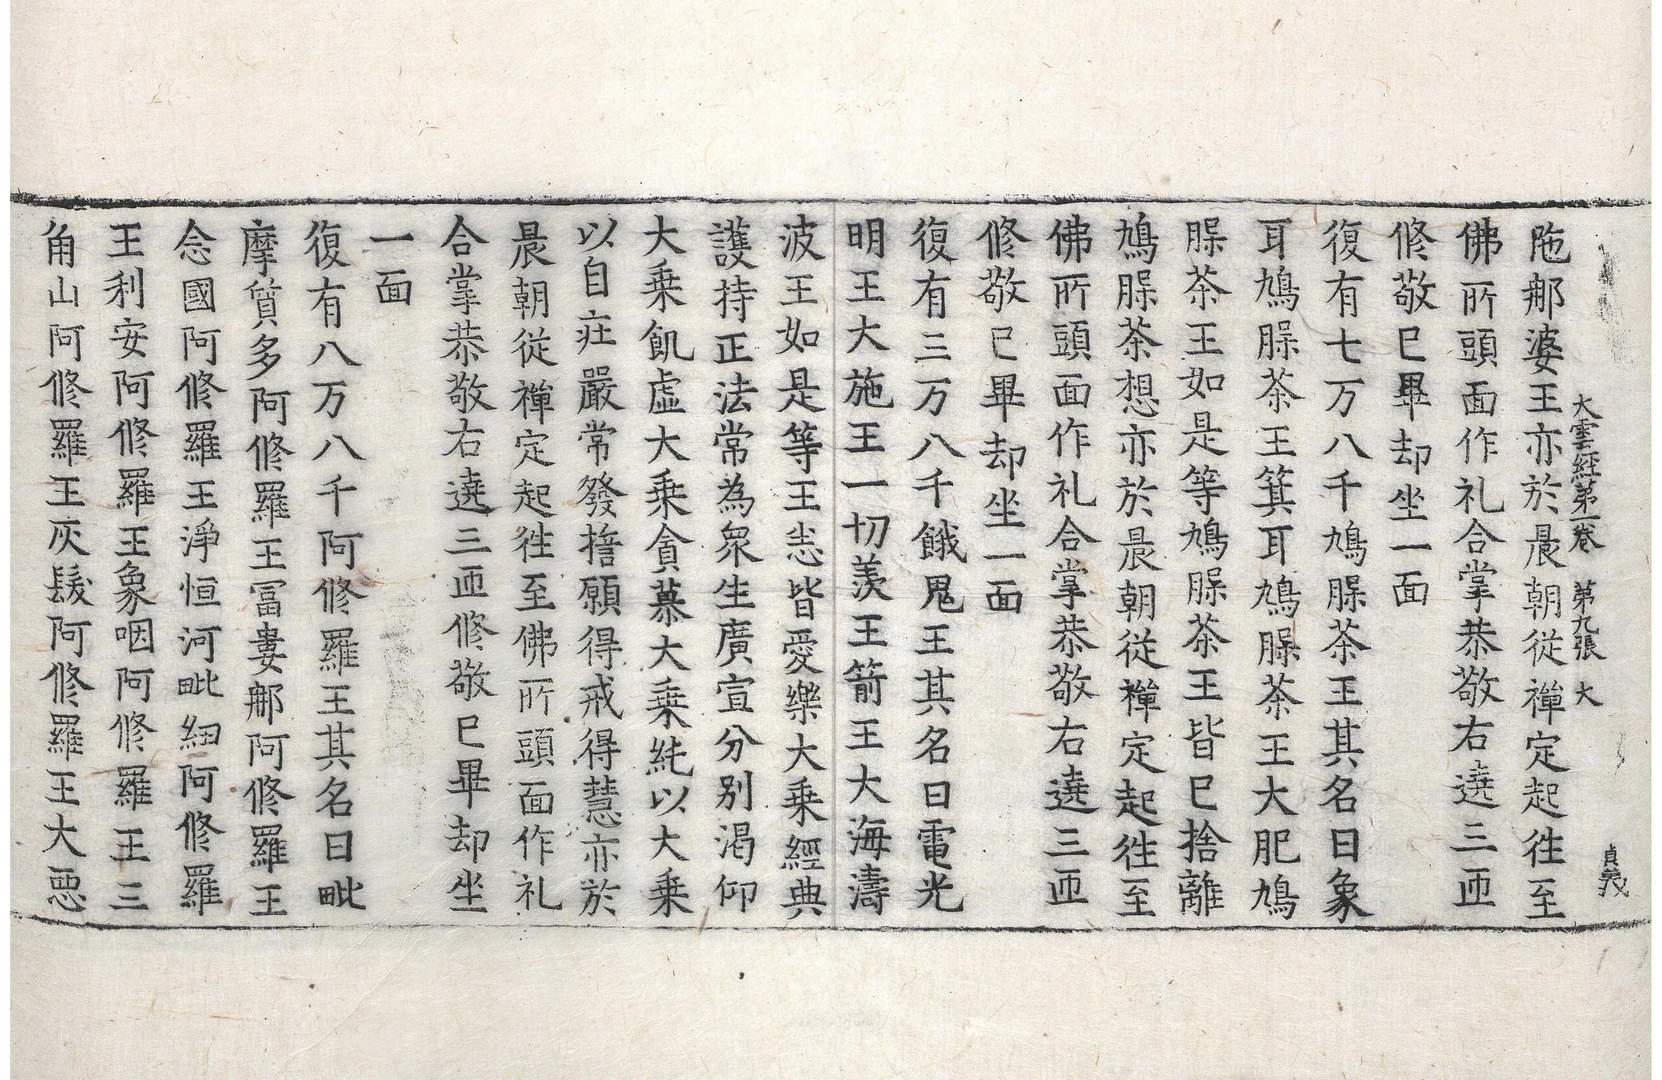 大雲經第一卷 第九張 大
貞義
陁那婆王亦於晨朝從禪定起往至
佛所頭面作礼合掌恭敬右遶三帀
修敬已畢却坐一面
復有七万八千鳩脲荼王其名曰象
耳鳩脲荼王箕耳鳩脲荼王大肥鳩
脲荼王如是等鳩脲荼王皆已捨離
鳩脲荼想亦於晨朝從禪定起往至
佛所頭面作礼合掌恭敬右遶三帀
修敬已畢却坐一面
復有三万八千餓鬼王其名曰電光
明王大施王一切羡王箭王大海濤
波王如是等王悉皆愛樂大乗經典
護持正法常為衆生廣宣分别渴仰
大乗飢虛大乗貪慕大乗純以大乗
以自莊嚴常發擔願得戒得慧亦於
晨朝從禪定起往至佛所頭面作礼
合掌恭敬右遶三帀修敬已畢却坐
一面
復有八万八千阿修羅王其名曰毗
摩質多阿修羅王冨婁那阿修羅王
念國阿修羅王淨恒河毗紐阿修羅
王利安阿修羅王象咽阿修羅王三
角山阿修羅王灰髮阿修羅王大惡